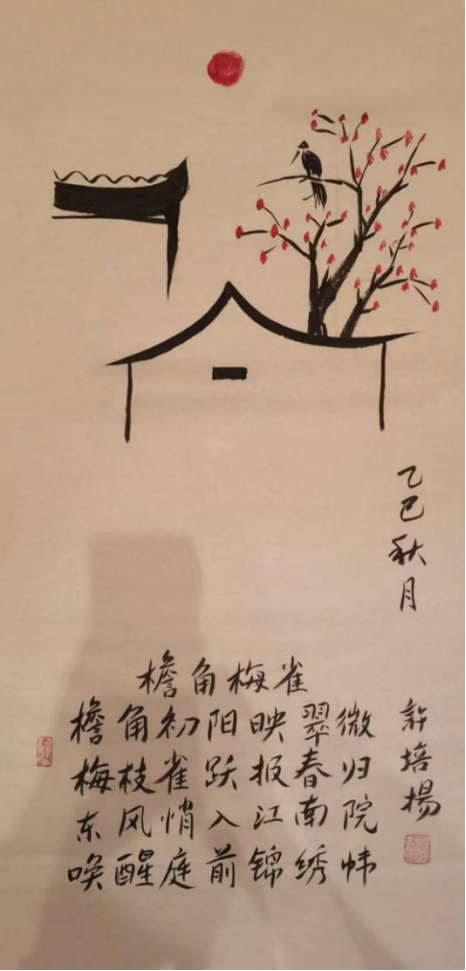 乙巳秋月
檐角梅雀
檐角初阳映翠微
梅枝雀跃报春归
东风悄入江南院
唤醒庭前锦绣帏
許培揚